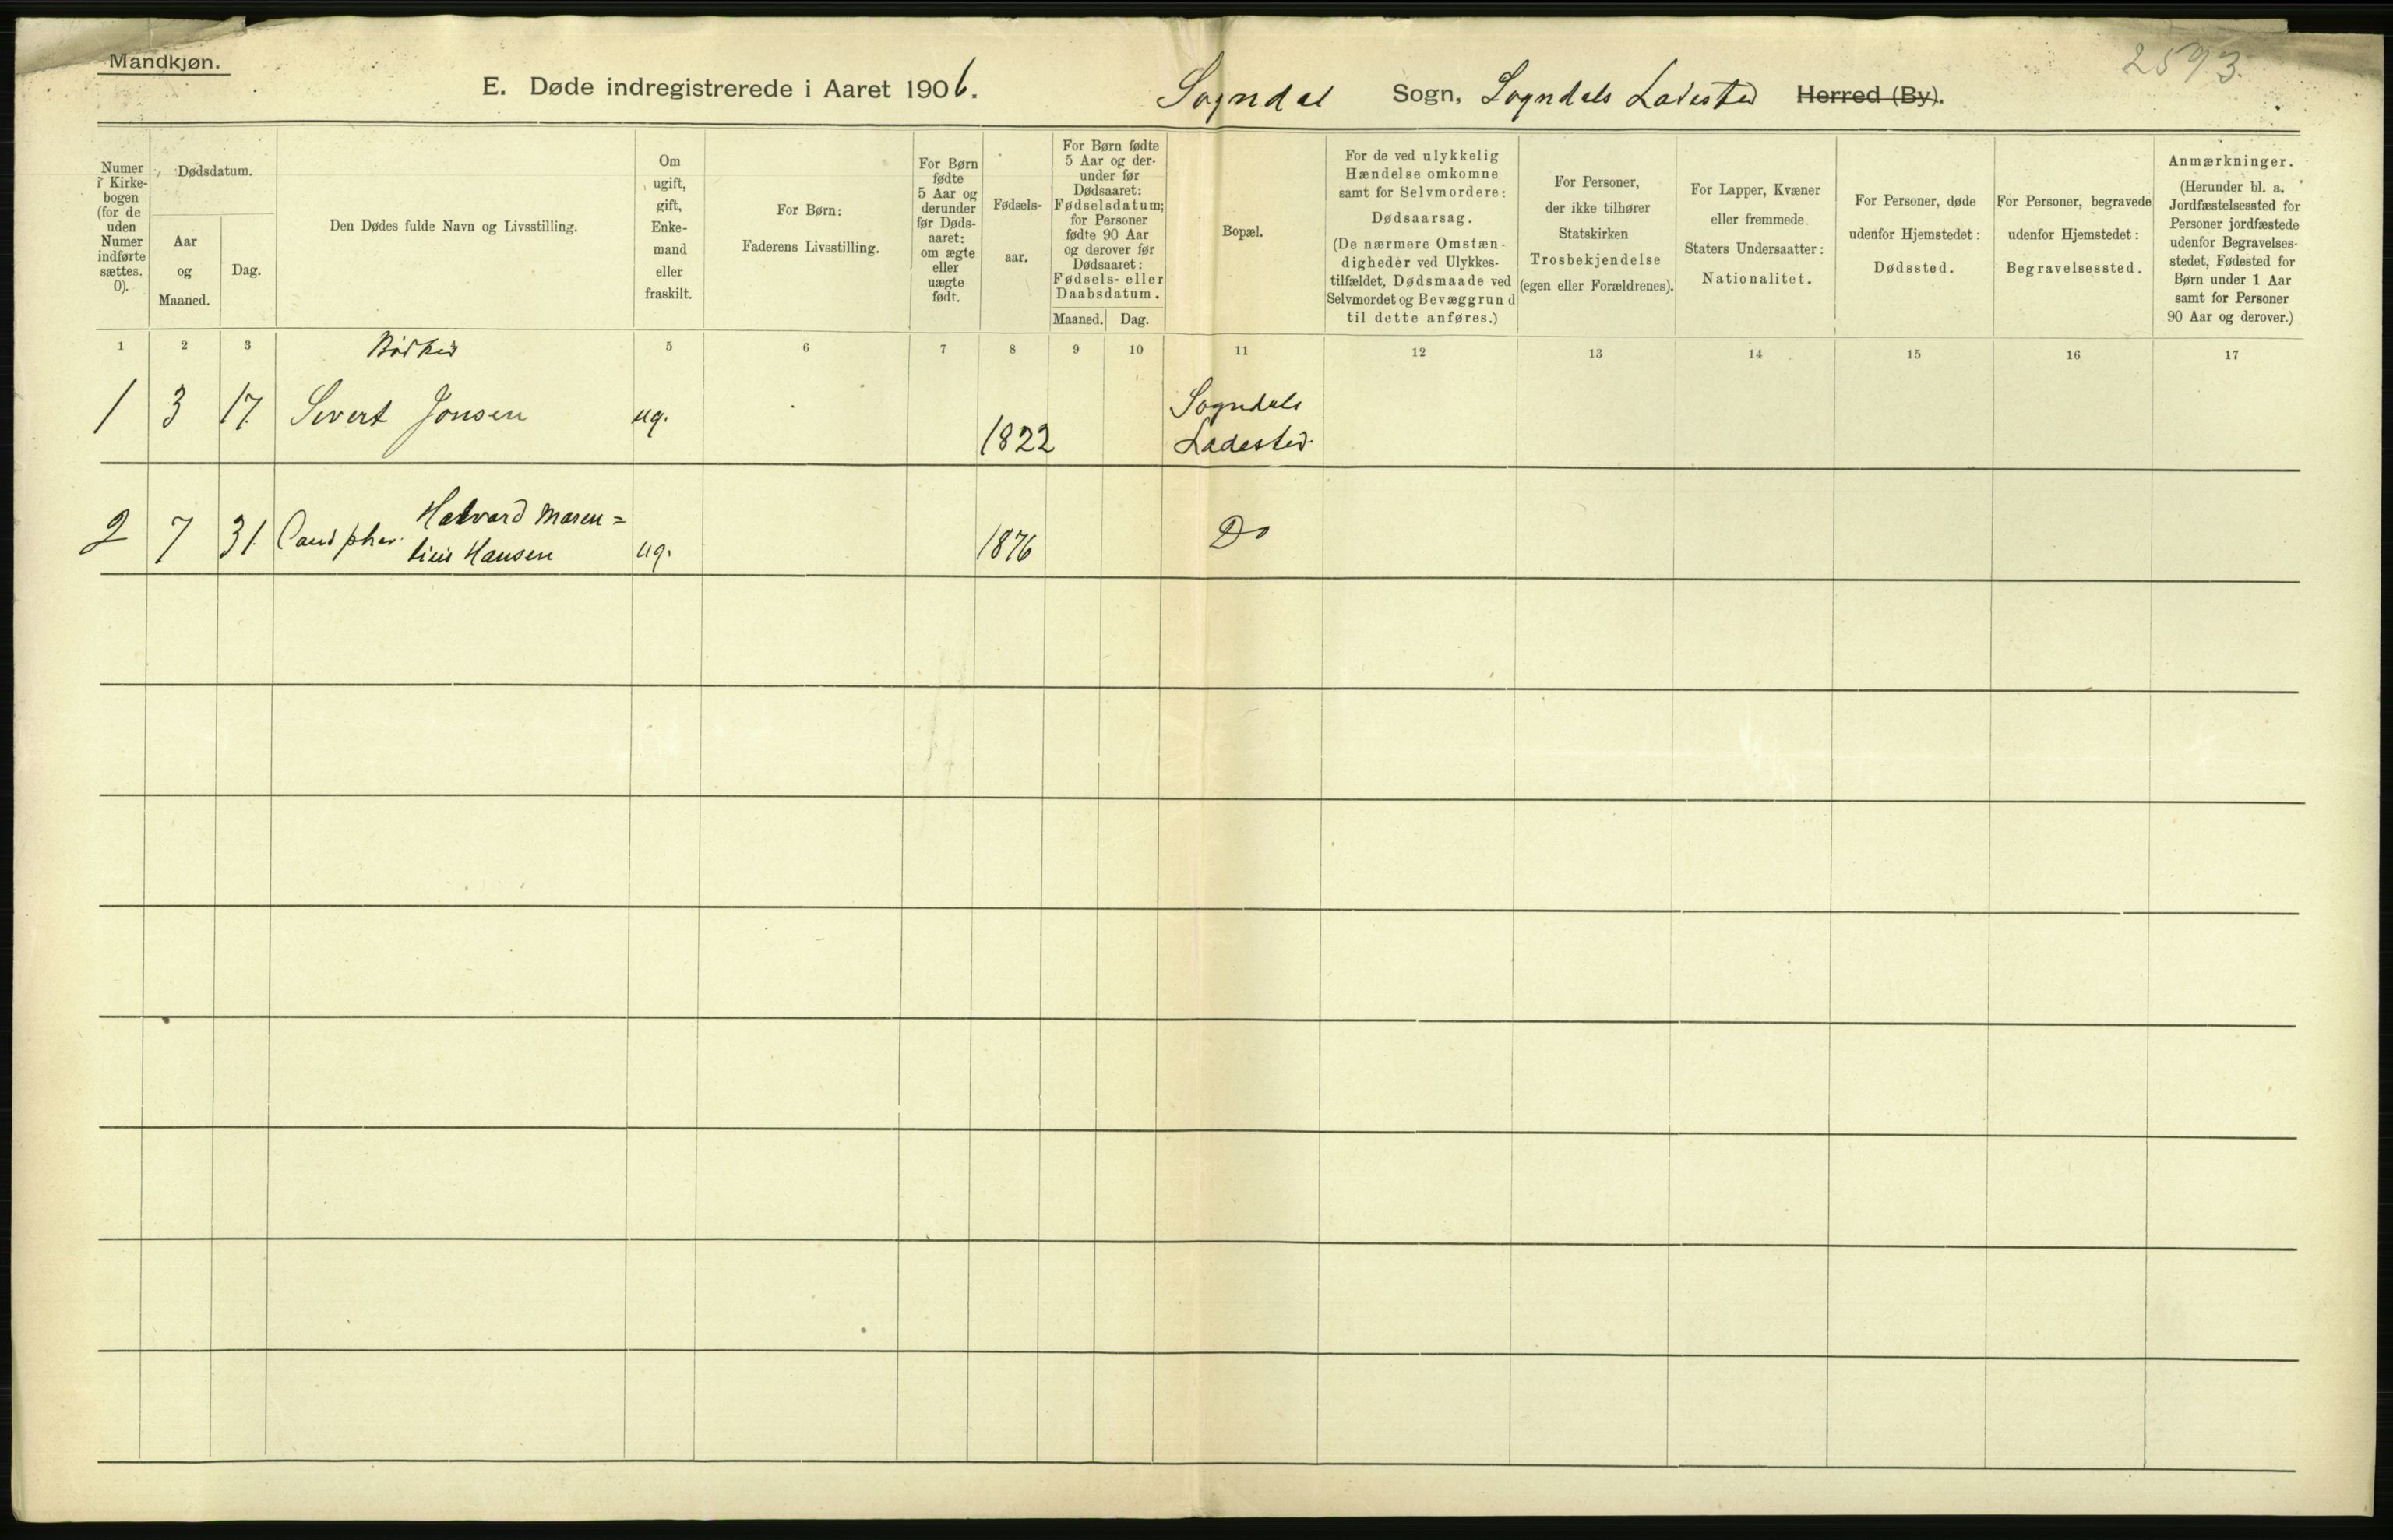 Mandkjøn.
2593.
E. Døde indregistrerede i Aaret 1906. Sogndal Sogn, Sogndals Ladested Herred (By).
Numer
i Kirke-
bogen
(for de
uden
Numer
indførte
sættes.
0).
Dødsdatum.
Aar
og
Maaned.
Dag.
Den Dødes fulde Navn og Livsstilling.
Om
ugift,
gift,
Enke-
mand
eller
fraskilt.
For Børn:
Faderens Livsstilling.
For Børn
fødte
5 Aar og
derunder
før Døds-
aaret:
om ægte
eller
uægte
født.
Fødsels-
aar.
For Børn fødte
5 Aar og der-
under før
Dødsaaret:
Fødselsdatum;
for Personer
fødte 90 Aar
og derover før
Dødsaaret:
Fødsels- eller
Daabsdatum.
Maaned. Dag.
Bopæl.
For de ved ulykkelig
Hændelse omkomne
samt for Selvmordere:
Dødsaarsag.
(De nærmere Omstæn-
digheder ved Ulykkes-
tilfældet, Dødsmaade ved
Selvmordet og Bevæggrund
til dette anføres.)
For Personer,
der ikke tilhører
Statskirken
Trosbekjendelse
(egen eller Forældrenes).
For Lapper, Kvæner
eller fremmede
Staters Undersaatter:
Nationalitet.
For Personer, døde
udenfor Hjemstedet:
Dødssted.
For Personer, begravede
udenfor Hjemstedet:
Begravelsessted.
Anmærkninger.
(Herunder bl. a.
Jordfæstelsessted for
Personer jordfæstede
udenfor Begravelses-
stedet, Fødested for
Børn under 1 Aar
samt for Personer
90 Aar og derover.)
1 2 3 5 6 7 8 9 10 11 12 13 14 15 16 17
1 3 17. Sivert Jonsen ug. 1822 Sogndals
Ladested
2 7 31. Cand phar. Halvard Maren=
tius Hansen ug. 1876 Do